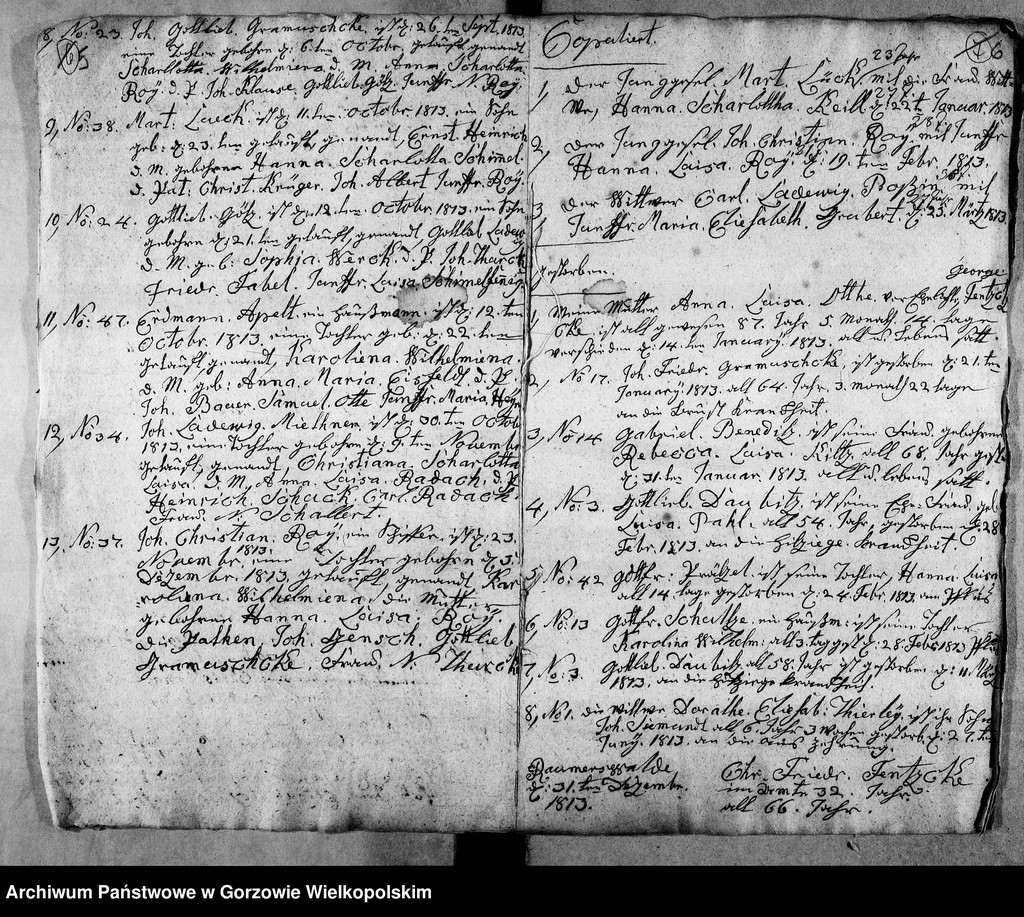 65
8, No: 23. Joh. Gottlieb. Gramuschcke, ist d: 26. ten Sept. 1813
eine Tochter gebohren d: 6. ten Octobr, getauft, genandt
Scharlotta. Wilhelmiena. d. M. Anna. Scharlotta.
Roÿ. d. P. Joh. Klause. Gottlieb. Götz. Junffr. N. Roÿ.
9, No: 38. Mart: Lück. ist d: 11. ten. Octobr. 1813. ein Sohn
geb: d: 23. ten getauft, genandt, Ernst. Heinrich
d. M. gebohren Hanna. Scharlotta. Schimel.
d. Pat. Christ. Krüger. Joh. Albert Junffr. Roÿ.
10, No: 24. Gottlieb. Götz. ist d: 12. ten. Octobr. 1813. ein Sohn
gebohren d: 21. ten getauft, genandt, Gottlieb Ladewig
d. M. geb: Sophia. Werck. d. P. Joh. Tharck
Friedr. Fabel. Junffr. Luisa. Schimelfenig.
11, No: 47. Erdmann. Apelt. ein Häußmann. ist d: 12. ten
Octobr. 1813. eine Tochter geb: d: 22. ten
getauft, genandt, Karoliena. Wilhelmiena.
d. M. geb: Anna. Maria. Eisfeldt. d. P.
Joh. Bauer. Samuel. Otte Junffr. Maria.
12, No 34. Joh. Ladewig. Miethner. ist d: 30. ten Octob
1813. eine Tochter gebohren d: 7. ten Novembr
getauft, genandt, Christiana. Scharlotta
Luisa. d. M. Anna. Luisa. Radach. d. P.
Heinrich. Schack. Carl. Radach.
Frau. N. Schallert.
13, No: 37. Joh. Christian. Roÿ. ein ist d: 23.
Novembr. 1813. eine Tochter gebohren d. 3.
Dezembr. 1813. getauft, genandt Kar-
roliena. Wilhelmiena. die Mutter
gebohren Hanna. Luisa. Roÿ.
die Pathen. Joh. Gensch. Gottlieb.
Gramuschcke. Frau. N. Tharck
66
Copuliert.
1, der Junggesel. Mart. Lück mit die Frau. Witt
we, Hanna. Scharlotha. Keill d: 22t Januar 1813
2, der Junggesel. Joh. Christian. Roÿ mit Junffr
Hanna. Luisa. Roÿ d: 19. ten Febr. 1813.
3, der Wittwer Carl. Ladewig. mit
Junffr. Maria. Eliesabeth. Grabert. d: 23. Märtz 1813
Gestorben.
George
1, Meine Mutter Anna. Luisa. Otthe. verEhlichte, Fentzc
cke, ist alt gewesen 87. Jahr 5. Monath 14. tage
verschieden d: 14. ten January. 1813. alt u. Lebens satt.
2, No 17. Joh. Friedr. Gramuschcke, ist gestorben d: 21. ten
January. 1813. alt 64. Jahr. 3. monath 22 tage
an die Brust Kranckheit.
3, No 14 Gabriel. Benedix. ist seine Frau. gebohrene
Rebecca. Luisa. alt 68. Jahr
d: 31. ten Januar 1813. alt u. Lebens satt.
4, No: 3. Gottlieb. Daubitz. ist seine Ehe-Frau. geb
Luisa. Pahl. alt 54. Jahr, gestorben d: 28
Febr. 1813. an die hitziege. Kranckheit.
5, No: 42 Gottfr: ist seine Tochter, Hanna. Luisa
alt 14. tage gestorben d: 24. Febr. 1813 am
6, No. 13 Gottfr. Schultze. ein Häußm: ist seine Tochter
Karolina Wilhelm: alt 3. tag gest d: 28. Febr 1813
7, No: 3. Gottlieb. Daubitz alt 58. Jahr ist gestorben d: 11. Märtz
1813. an die hitziege Kranckheit.
8, No 1. die Wittwe Dorathe. Eliesab: Thierley. ist ihr Sohn
Joh. Siemundt alt 6. Jahr 3 wochen gestorb. d: 27. ten
Juny. 1813. an die aus zehrung.
Raumerswalde
d: 31. ten Dezembr.
1813.
Chr. Friedr. Fentzcke
im Amte 32. Jahr
alt 66. Jahr.
Archiwum Państwowe w Gorzowie Wielkopolskim